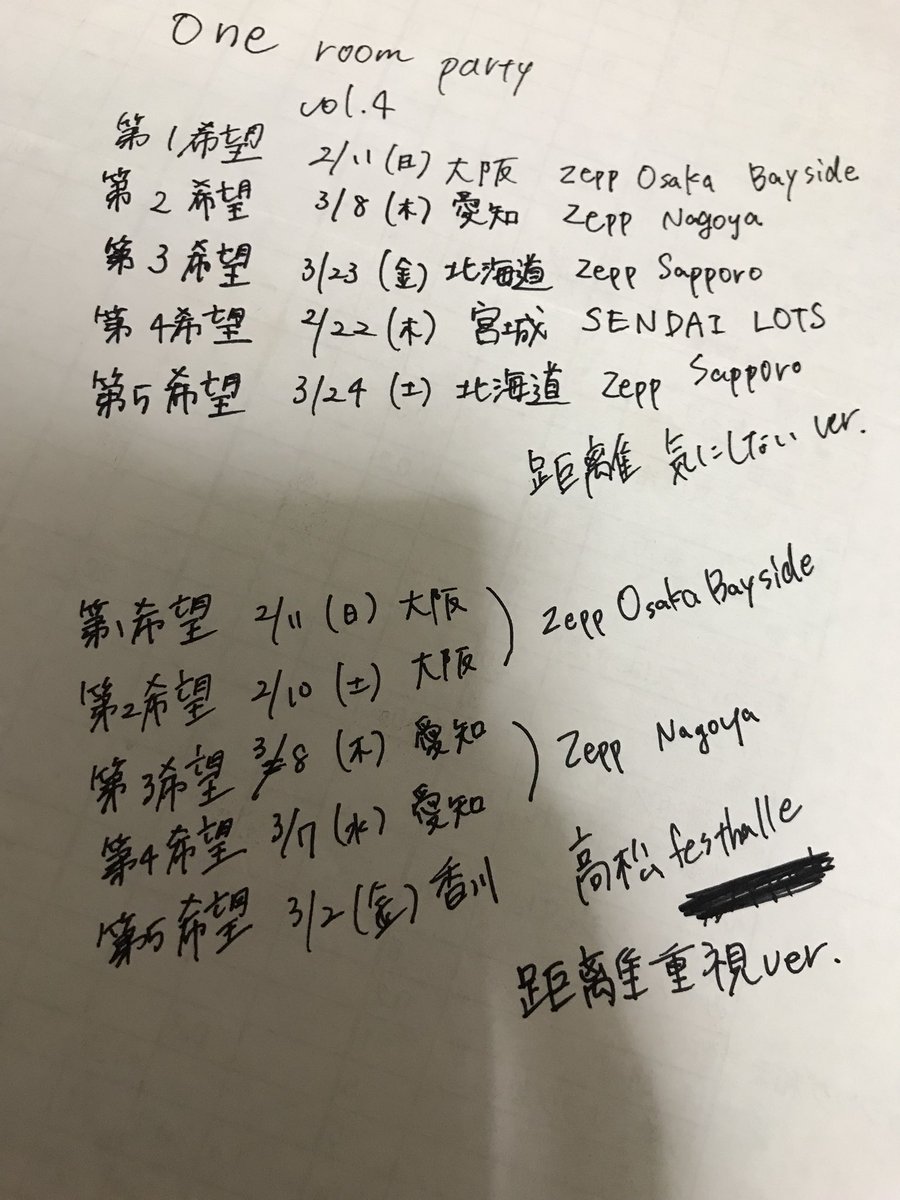 One room party
vol.4
第1希望 2/11(日) 大阪 Zepp Osaka Bayside
第2希望 3/8(木) 愛知 Zepp Nagoya
第3希望 3/23(金) 北海道 Zepp Sapporo
第4希望 2/22(木) 宮城 SENDAI LOTS
第5希望 3/24(土) 北海道 Zepp Sapporo
距離 気にしない ver.
第1希望 2/11(日) 大阪 ) Zepp Osaka Bayside
第2希望 2/10(土) 大阪
第3希望 3/8(木) 愛知 ) Zepp Nagoya
第4希望 3/7(水) 愛知
第5希望 3/2(金) 香川 高松festhalle
距離重視ver.